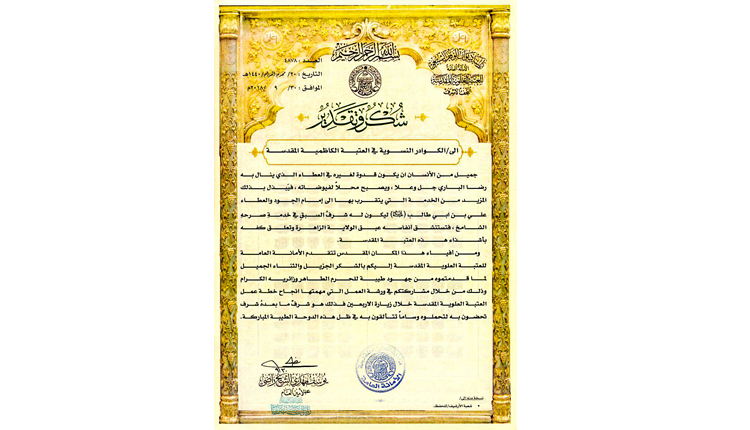 بسم الله الرحمن الرحيم
العدد: ٤٨٧٨
التاريخ: ٢٠/محرم الحرام/١٤٤٠هـ
الموافق: ٣٠/ ٩ /٢٠١٨م
شكر وتقدير
الى/الكوادر النسوية في العتبة الكاظمية المقدسة
جميل من الأنسان ان يكون قدوة لغيره في العطاء الذي ينال به
رضا الباري جل وعلا، ويصبح محلاً لفيوضاته، فيَبذل بذلك
المزيد من الخدمة التي يتقرب بها الى إمام الجود والعطاء
علي بن ابي طالب ليكون له شرفُ السبق في خدمة صرحهِ
الشامخ، فتستنشق أنفاسه عبق الولاية الزاهرة وتعلق كفه
بأشذاء هذه العتبة المقدسة.
ومن أفياء هذا المكان المقدس تتقدم الأمانة العامة
للعتبة العلوية المقدسة إليكم بالشكر الجزيل والثناء الجميل
لما قدمتموه من جهود طيبة للحرم الطاهر وزائريه الكرام
وذلك من خلال مشاركتكم في ورشة العمل التي مهمتها انجاح خطة عمل
العتبة العلوية المقدسة خلال زيارة الاربعين فذلك هو شرفٌ ما بعدهُ شرف
تحضون به لتحملوه وساماً تتألقون به في ظل هذه الدوحة الطيبة المباركة.
الأمانة العامة
نسخة منه إلى/
• شعبة الأرشيف/للحفظ.